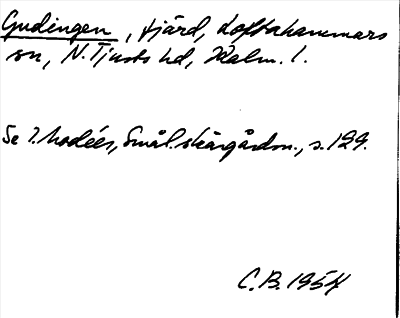 Gudingen, fjärd, Loftahammars
sn, N. Tjusts hd, Kalm. l.
Se I. Modéer, Smål. skärgårdsn., s. 129.
C.B. 1954